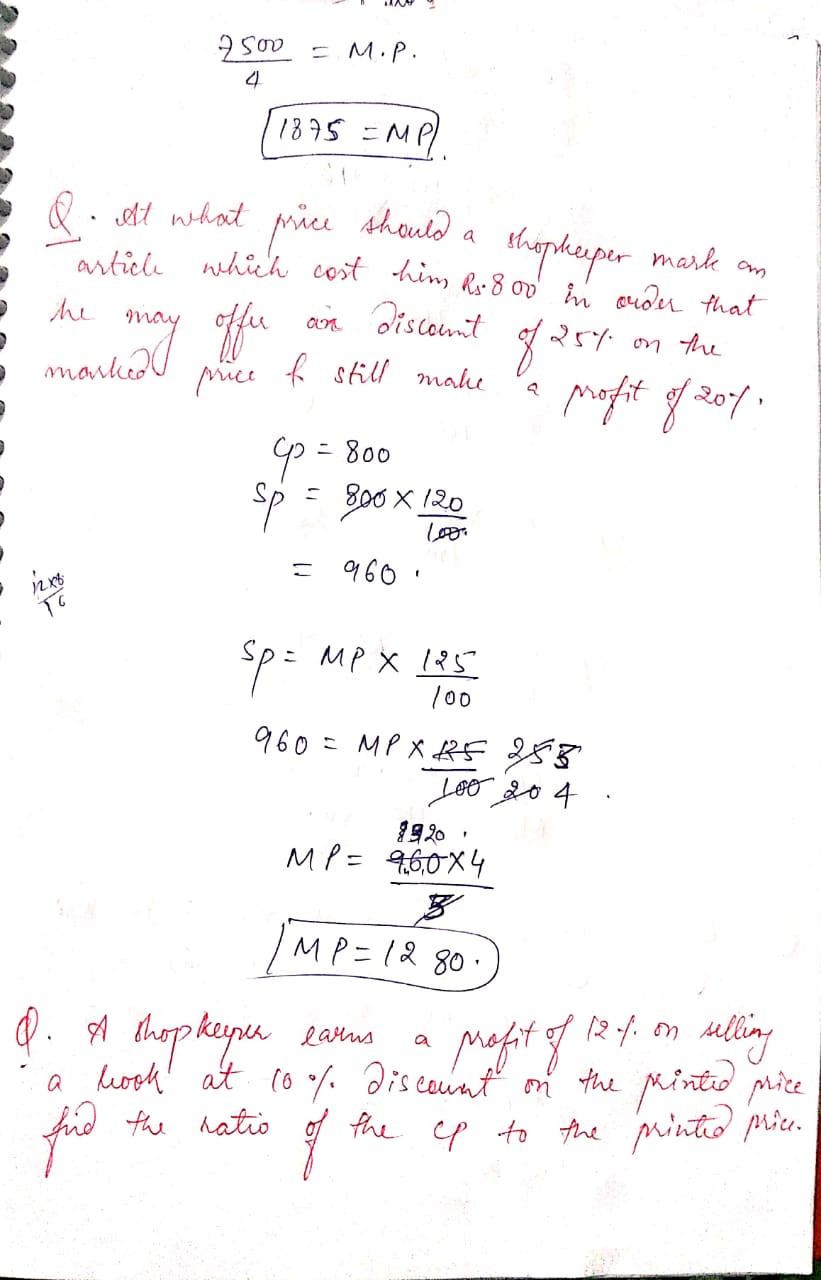 7500/4 = M.P.
1875 = MP.
Q. At what price should a shopkeeper mark an
article which cost him Rs. 800 in order that
he may offer an Discount of 25% on the
marked price & still make a profit of 20%.
CP = 800
SP = 800 X 120/100
= 960.
SP = MP X 125/100
960 = MP X 125 25 5/100 20 4.
320
MP = 960X4/3
MP = 1280.
Q. A shopkeeper earns a profit of 12% on selling
a book at 10% Discount on the printed price
find the ratio of the CP to the printed price.